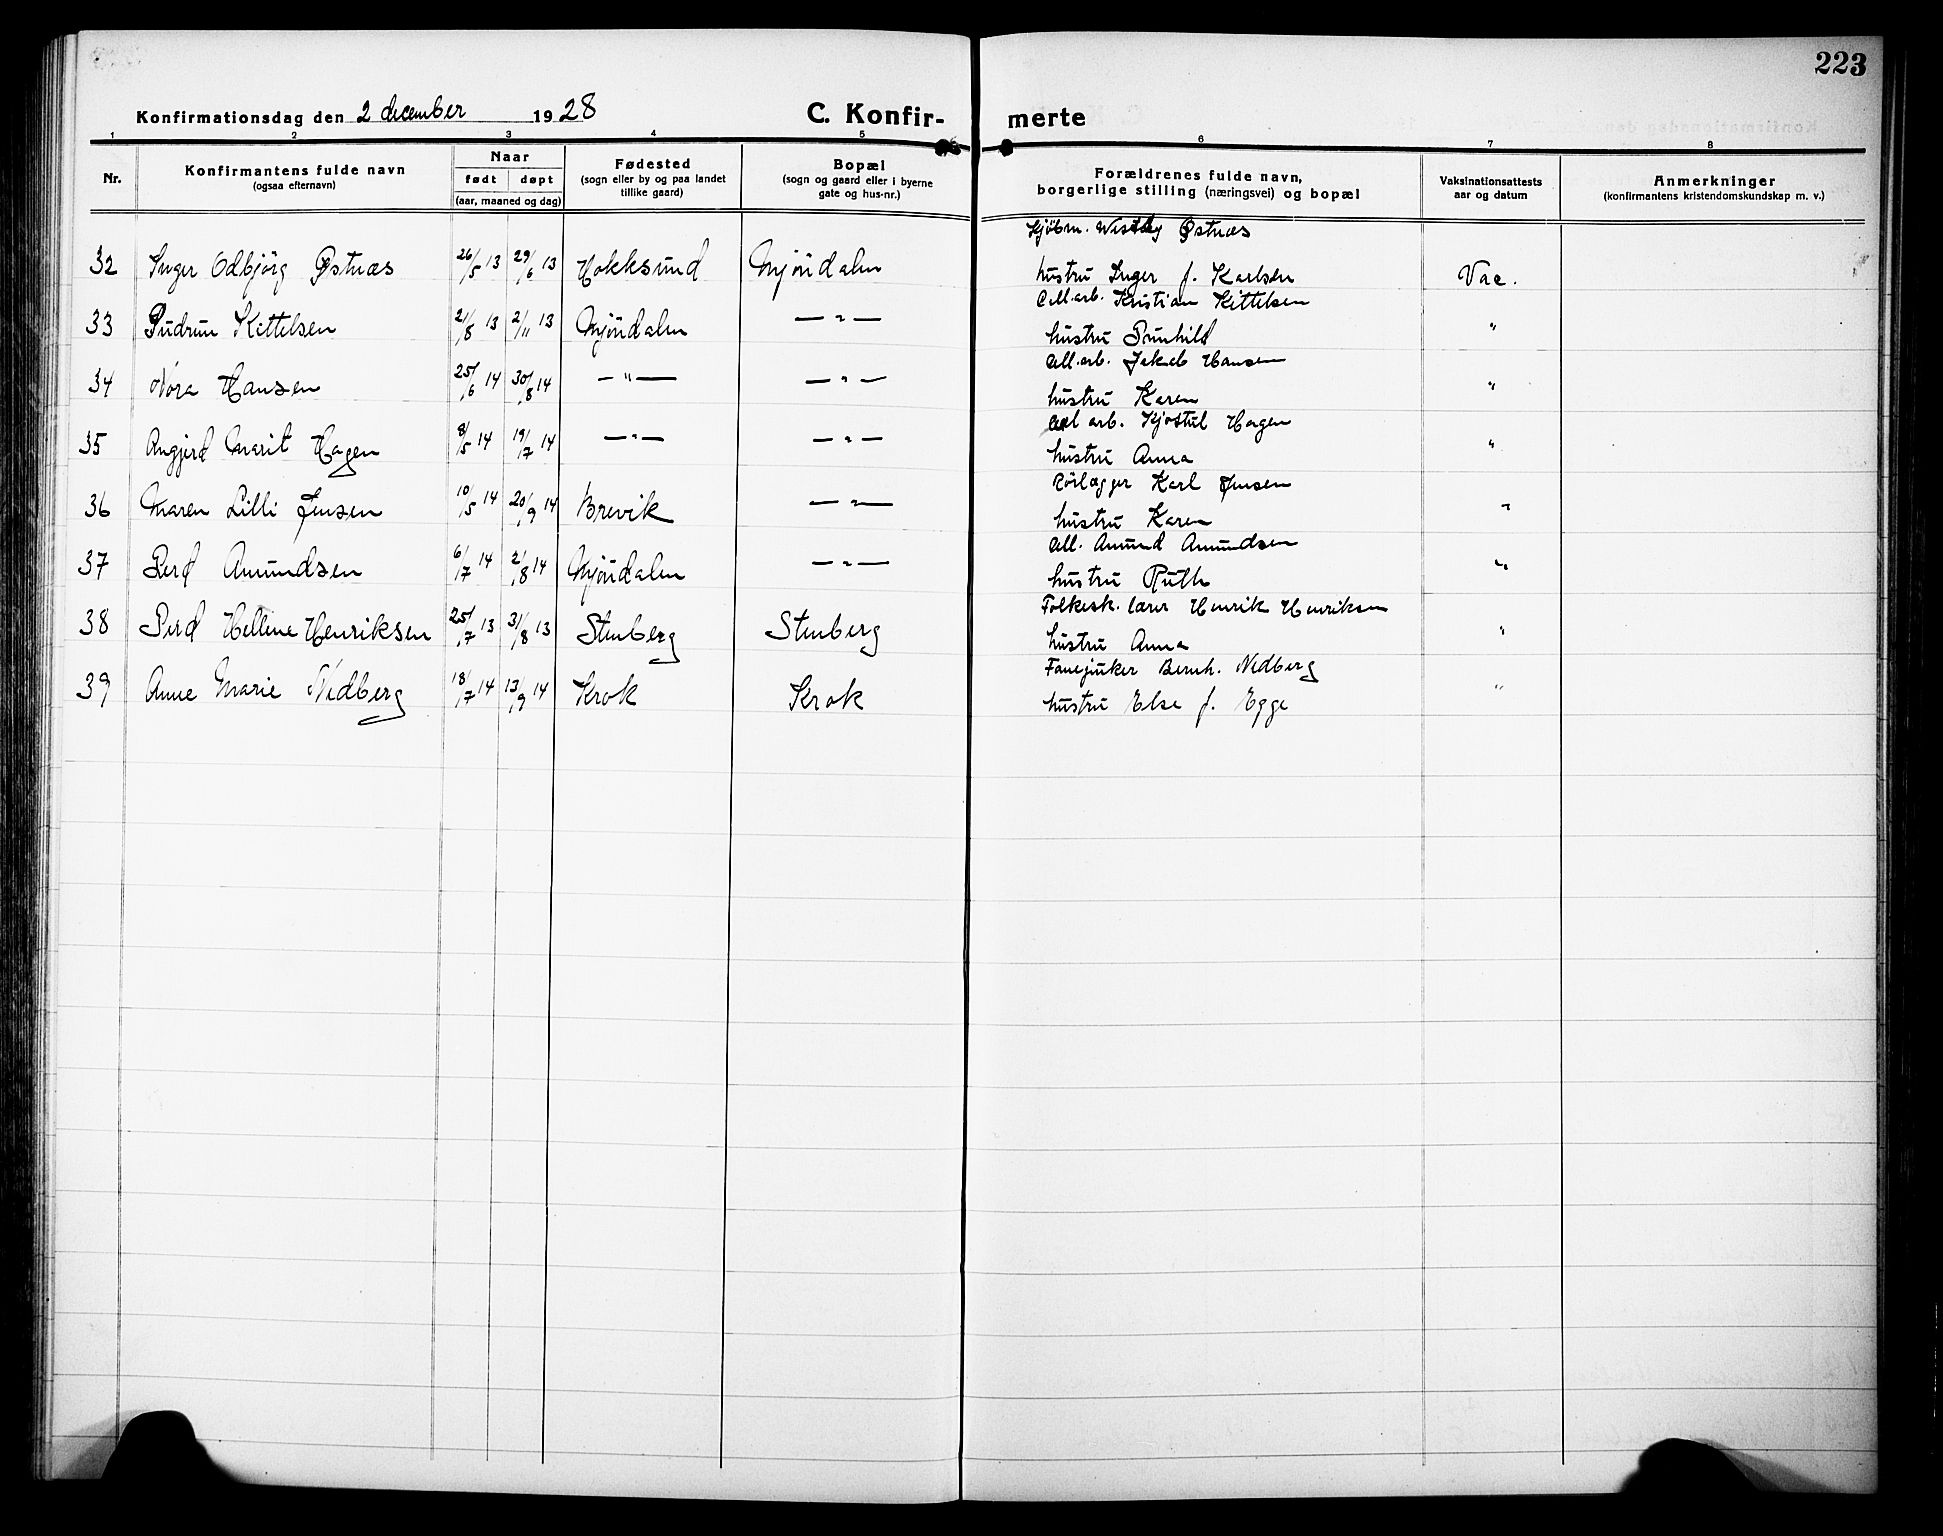 223
Konfirmationsdag den 2 december 1928
C. Konfir- merte
1 2 3 4 5 6 7 8
Nr.
Konfirmantens fulde navn
(ogsaa efternavn)
Naar
født døpt
(aar, maaned og dag)
Fødested
(sogn eller by og paa landet
tillike gaard)
Bopæl
(sogn og gaard eller i byerne
gate og hus-nr.)
Forældrenes fulde navn,
borgerlige stilling (næringsvei) og bopæl
Vaksinationsattests
aar og datum
Anmerkninger
(konfirmantens kristendomskundskap m. v.)
Kjöbm. Westby Østnæs
32 Inger Odbjörg Østnæs 26/5 13 29/6 13 Hokksund Mjöndalen hustru Inger f. Karlsen Vac.
Cell.arb. Kristian Kittelsen
33 Gudrun Kittelsen 21/8 13 2/11 13 Mjöndalen — " — hustru Gunhild "
Cell.arb. Jakob Hansen
34 Nora Hansen 25/6 14 30/8 14 — " — — " — hustru Karen "
Cell arb. Kjøstul Hagen
35 Angjerd Marit Hagen 8/5 14 19/7 14 — " — — " — hustru Anna "
Rörlægger Karl Jensen
36 Maren Lilli Jensen 10/5 14 20/9 14 Brevik — " — hustru Karen "
Cell. Amund Amundsen
37 Gerd Amundsen 6/7 14 2/8 14 Mjöndalen — " — hustru Ruth "
Folkesk. lærer Henrik Henriksen
38 Gerd Hellene Henriksen 25/7 13 31/8 13 Stenberg Stenberg hustru Anna "
Fanejunker Bernh. Nedberg
39 Anne Marie Nedberg 18/7 14 13/9 14 Krok Krok hustru Else f. Egge "